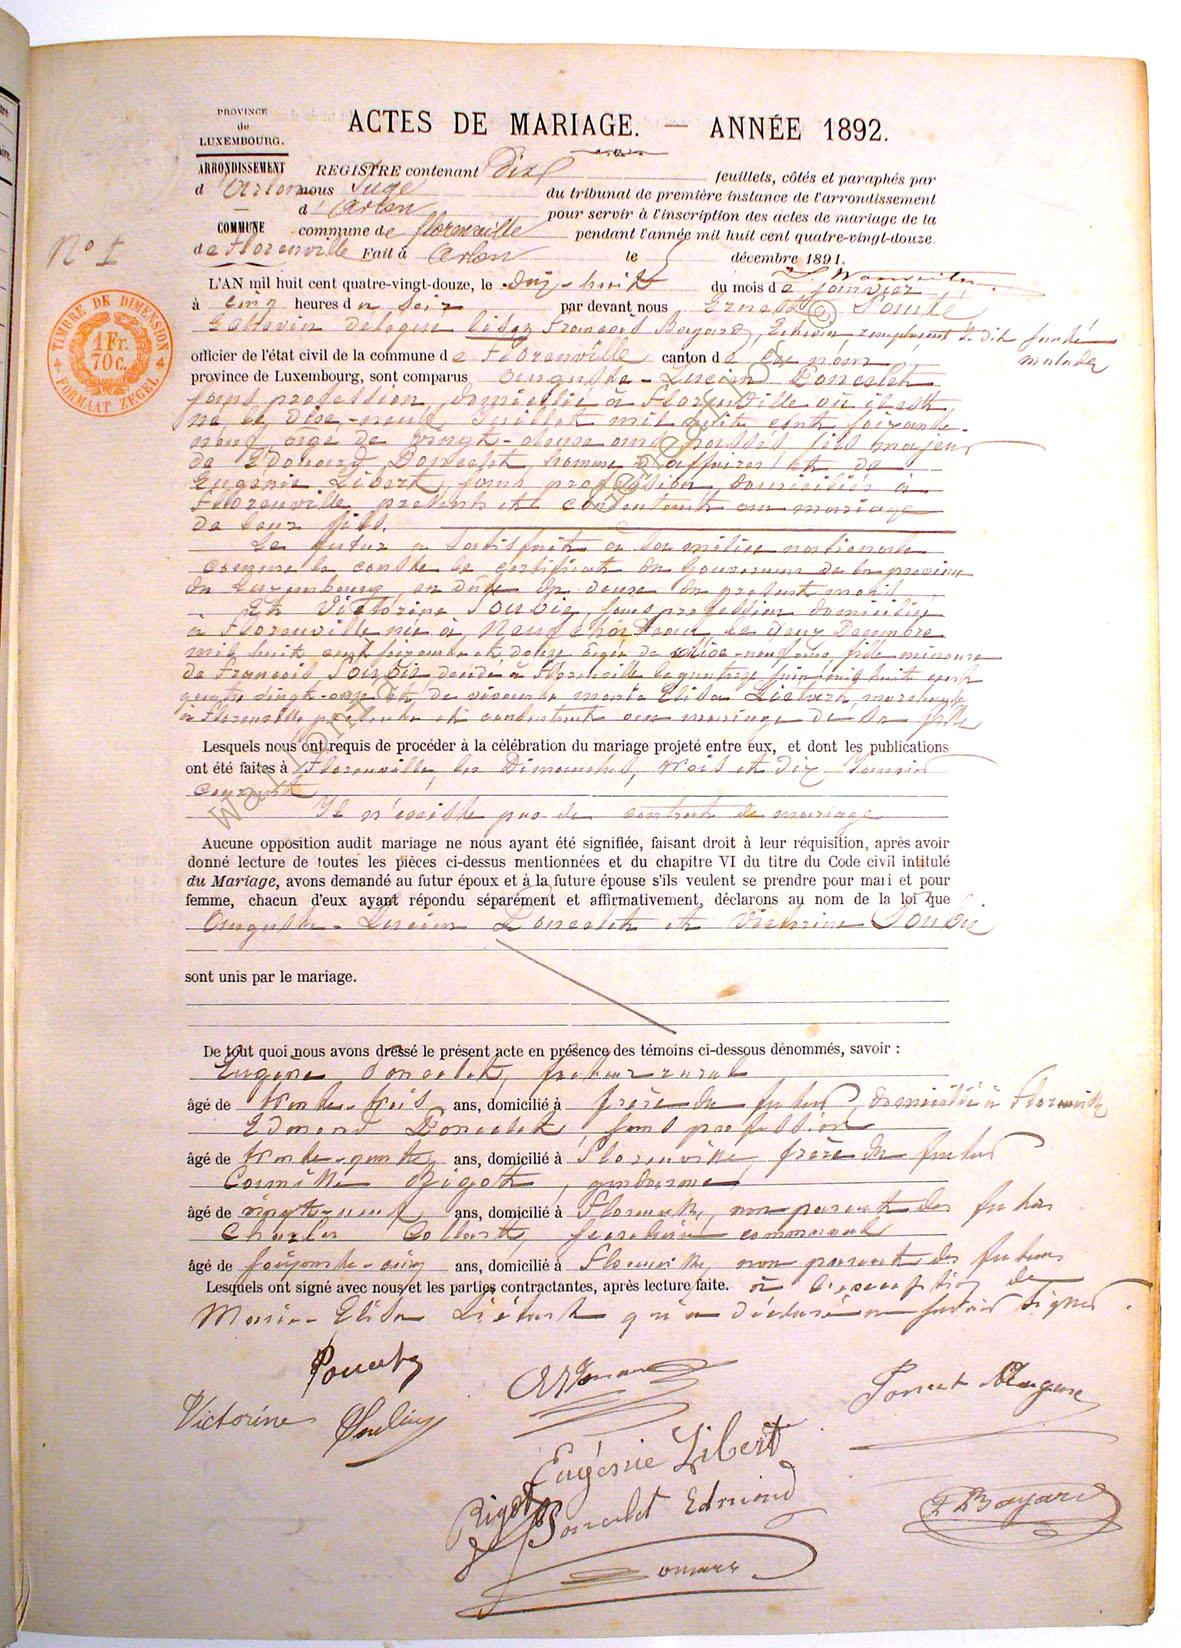 PROVINCE
de
LUXEMBOURG.
ACTES DE MARIAGE. — ANNÉE 1892.
ARRONDISSEMENT
d'Arlon
COMMUNE
de Florenville
REGISTRE contenant Dix feuillets, côtés et paraphés par
nous Juge du tribunal de première instance de l'arrondissement
d'Arlon pour servir à l'inscription des actes de mariage de la
commune de Florenville pendant l'année mil huit cent quatre-vingt-douze.
Fait à Arlon le décembre 1891.
No 1
TIMBRE DE DIMENSION
1 Fr.
70 C.
FORMAAT ZEGEL
L'AN mil huit cent quatre-vingt-douze, le Dix-huit du mois de Janvier
à cinq heures du soir par devant nous Ernest
lisez François Bayard, Echevin, remplaçant
malade
officier de l'état civil de la commune de Florenville canton de
province de Luxembourg, sont comparus Auguste-Lucien Poncelet
sans profession, domicilié à Florenville où il est
né, le dix-neuf Juillet mil huit cent soixante-
neuf, âgé de vingt-deux ans passés, fils majeur
de Edouard Poncelet, homme d'affaires et de
Eugénie Libert, sans profession, domiciliés à
Florenville présents et consentants au mariage
de leur fils.
Le futur a satisfait à la milice nationale
comme le conste le certificat du Gouverneur de la province
du Luxembourg, en date du douze du présent mois.
Et Victorine Soubie, sans profession domiciliée
à Florenville née à Neufchâteau le deux Décembre
mil huit cent soixante et douze âgée de dix-neuf ans fille mineure
de François Soubie décédé à Florenville le quatorze Juin mil huit cent
quatre vingt-onze et de vivante Marie Elisa Liétart, marchande
à Florenville présente et consentant au mariage de sa fille
Lesquels nous ont requis de procéder à la célébration du mariage projeté entre eux, et dont les publications
ont été faites à Florenville, les Dimanches, trois et dix Janvier
courant
Il n'existe pas de contrat de mariage
Aucune opposition audit mariage ne nous ayant été signifiée, faisant droit à leur réquisition, après avoir
donné lecture de toutes les pièces ci-dessus mentionnées et du chapitre VI du titre du Code civil intitulé
du Mariage, avons demandé au futur époux et à la future épouse s'ils veulent se prendre pour mari et pour
femme, chacun d'eux ayant répondu séparément et affirmativement, déclarons au nom de la loi que
Auguste-Lucien Poncelet et Victorine Soubie
sont unis par le mariage.
De tout quoi nous avons dressé le présent acte en présence des témoins ci-dessous dénommés, savoir :
Eugène Poncelet, facteur rural
âgé de trente-trois ans, domicilié à frère du futur, domicilié à Florenville
Edmond Poncelet, sans profession
âgé de trente-quatre ans, domicilié à Florenville, frère du futur
Camille Rigot, gendarme
âgé de vingt-neuf ans, domicilié à Florenville, non parent des futurs
Charles Collart, secrétaire communal
âgé de soixante-cinq ans, domicilié à Florenville non parent des futurs
Lesquels ont signé avec nous et les parties contractantes, après lecture faite. à l'exception de
Marie-Elisa Liétart qui a déclaré ne savoir signer.
Poncelet
Victorine Soubie
Poncelet Eugène
Eugénie Libert
Rigot
Poncelet Edmond
F Bayard